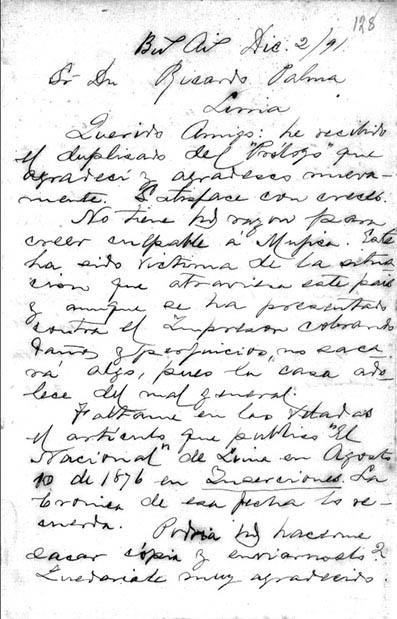 128
Bs As Dic. 2/91.
Sr Dn Ricardo Palma
Lima
Querido Amigo: he recibido
el duplicado del "Prólogo" que
agradecí y agradesco nueva-
mente. Satisface con creces.
No tiene Vd razon para
creer culpable á Mujica. Este
ha sido victima de la situa
cion que atraviesa este pais
y aunque se ha presentado
contra el Impresor cobrando
daños y perjuicios, no saca-
rá algo, pues la casa ado-
lece del mal general.
Faltame en las
el articulo que publicó "El
Nacional" de Lima en Agosto
10 de 1876 en Inserciones. La
Crónica de esa fecha lo re-
cuerda. Podria Vd hacerme
sacar cópia y enviarnosla?
Quedariale muy agradecido.